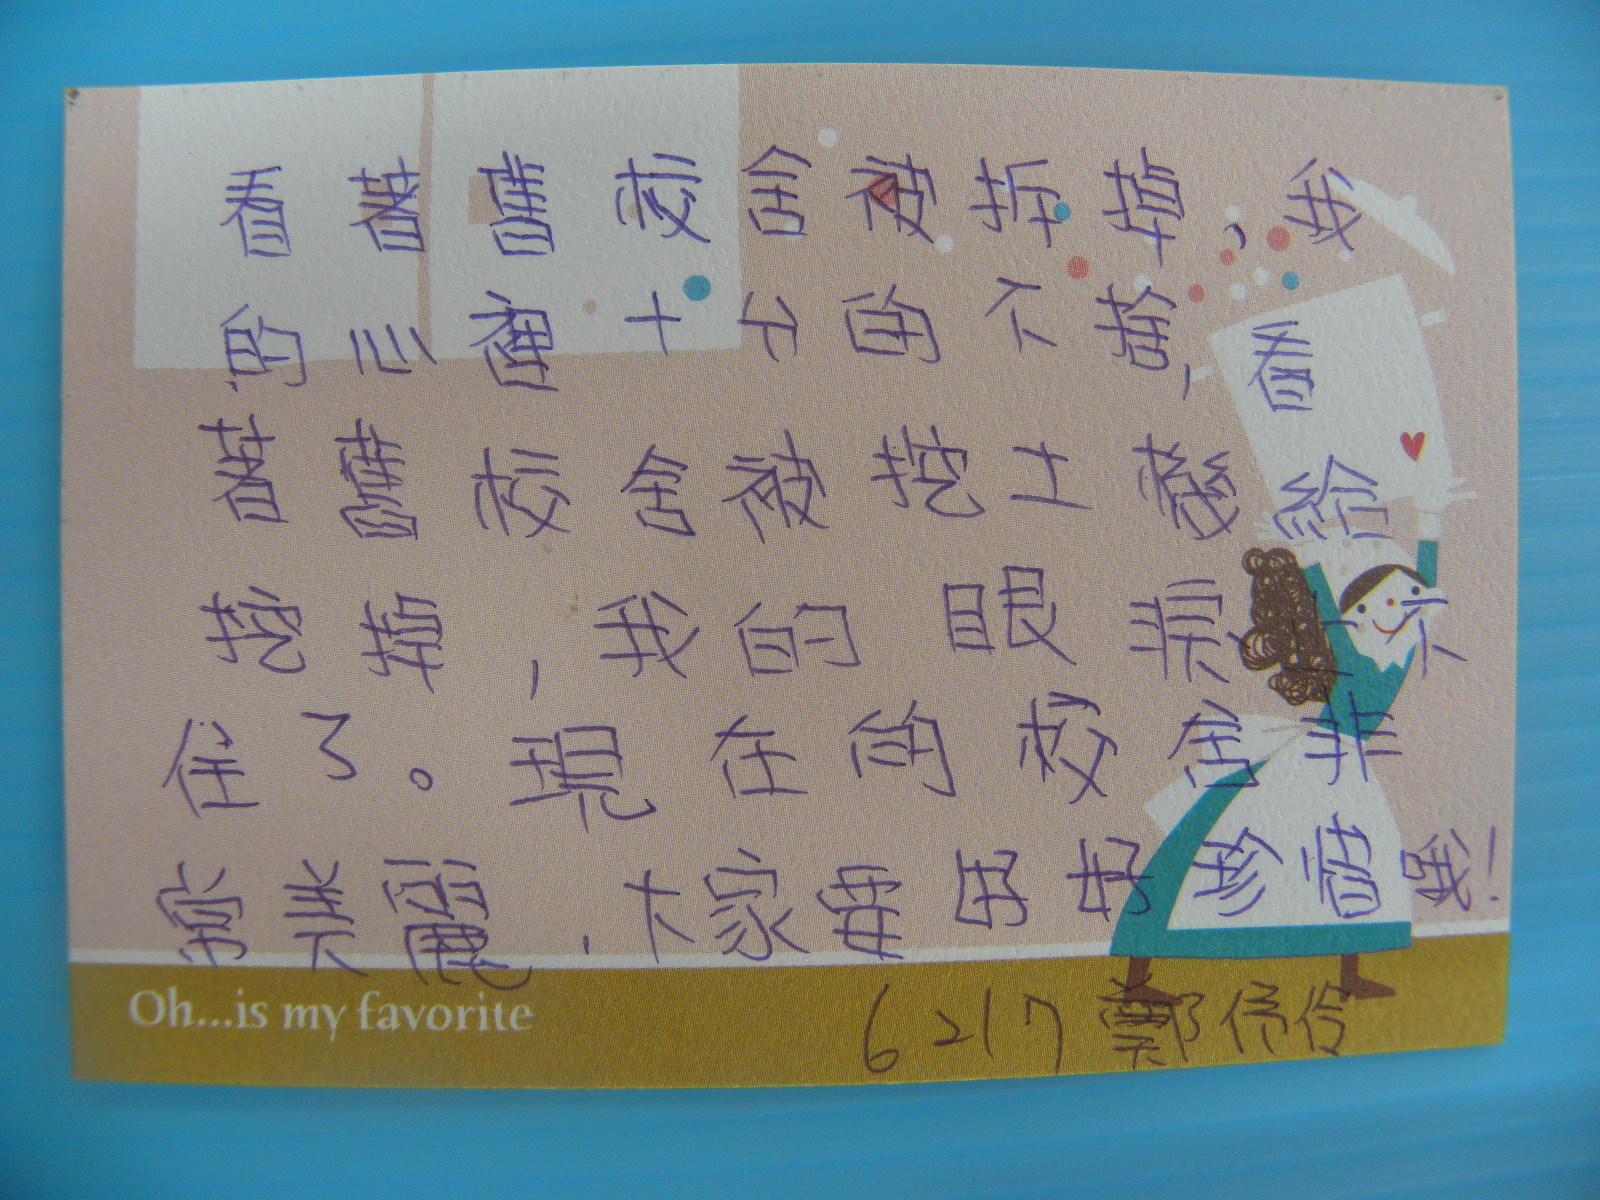 看著舊校舍被拆掉,我
的心裡十分的不捨,看
著舊校舍被挖土機給
挖掉,我的眼淚止不
住了。現在的校舍非
常美麗,大家要好好珍惜哦!
Oh...is my favorite
6217 鄭伃伶